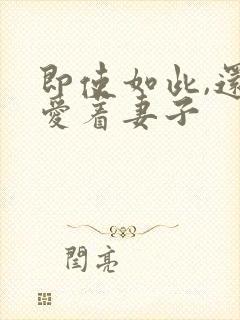 即使如此,還
愛着妻子
閆亮